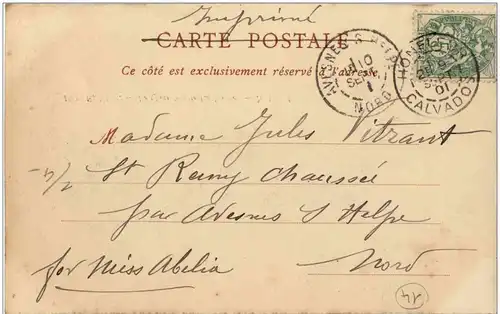 Imprimé
CARTE POSTALE
Ce côté est exclusivement réservé à l'adresse.
AVESNES S HELPE
10
SEPT
NORD
HONFLEUR
SEPT
01
CALVADOS
Madame Jules Vitrant
St Remy Chaussée
par Avesnes S Helpe
for Miss Abelia
Nord
14